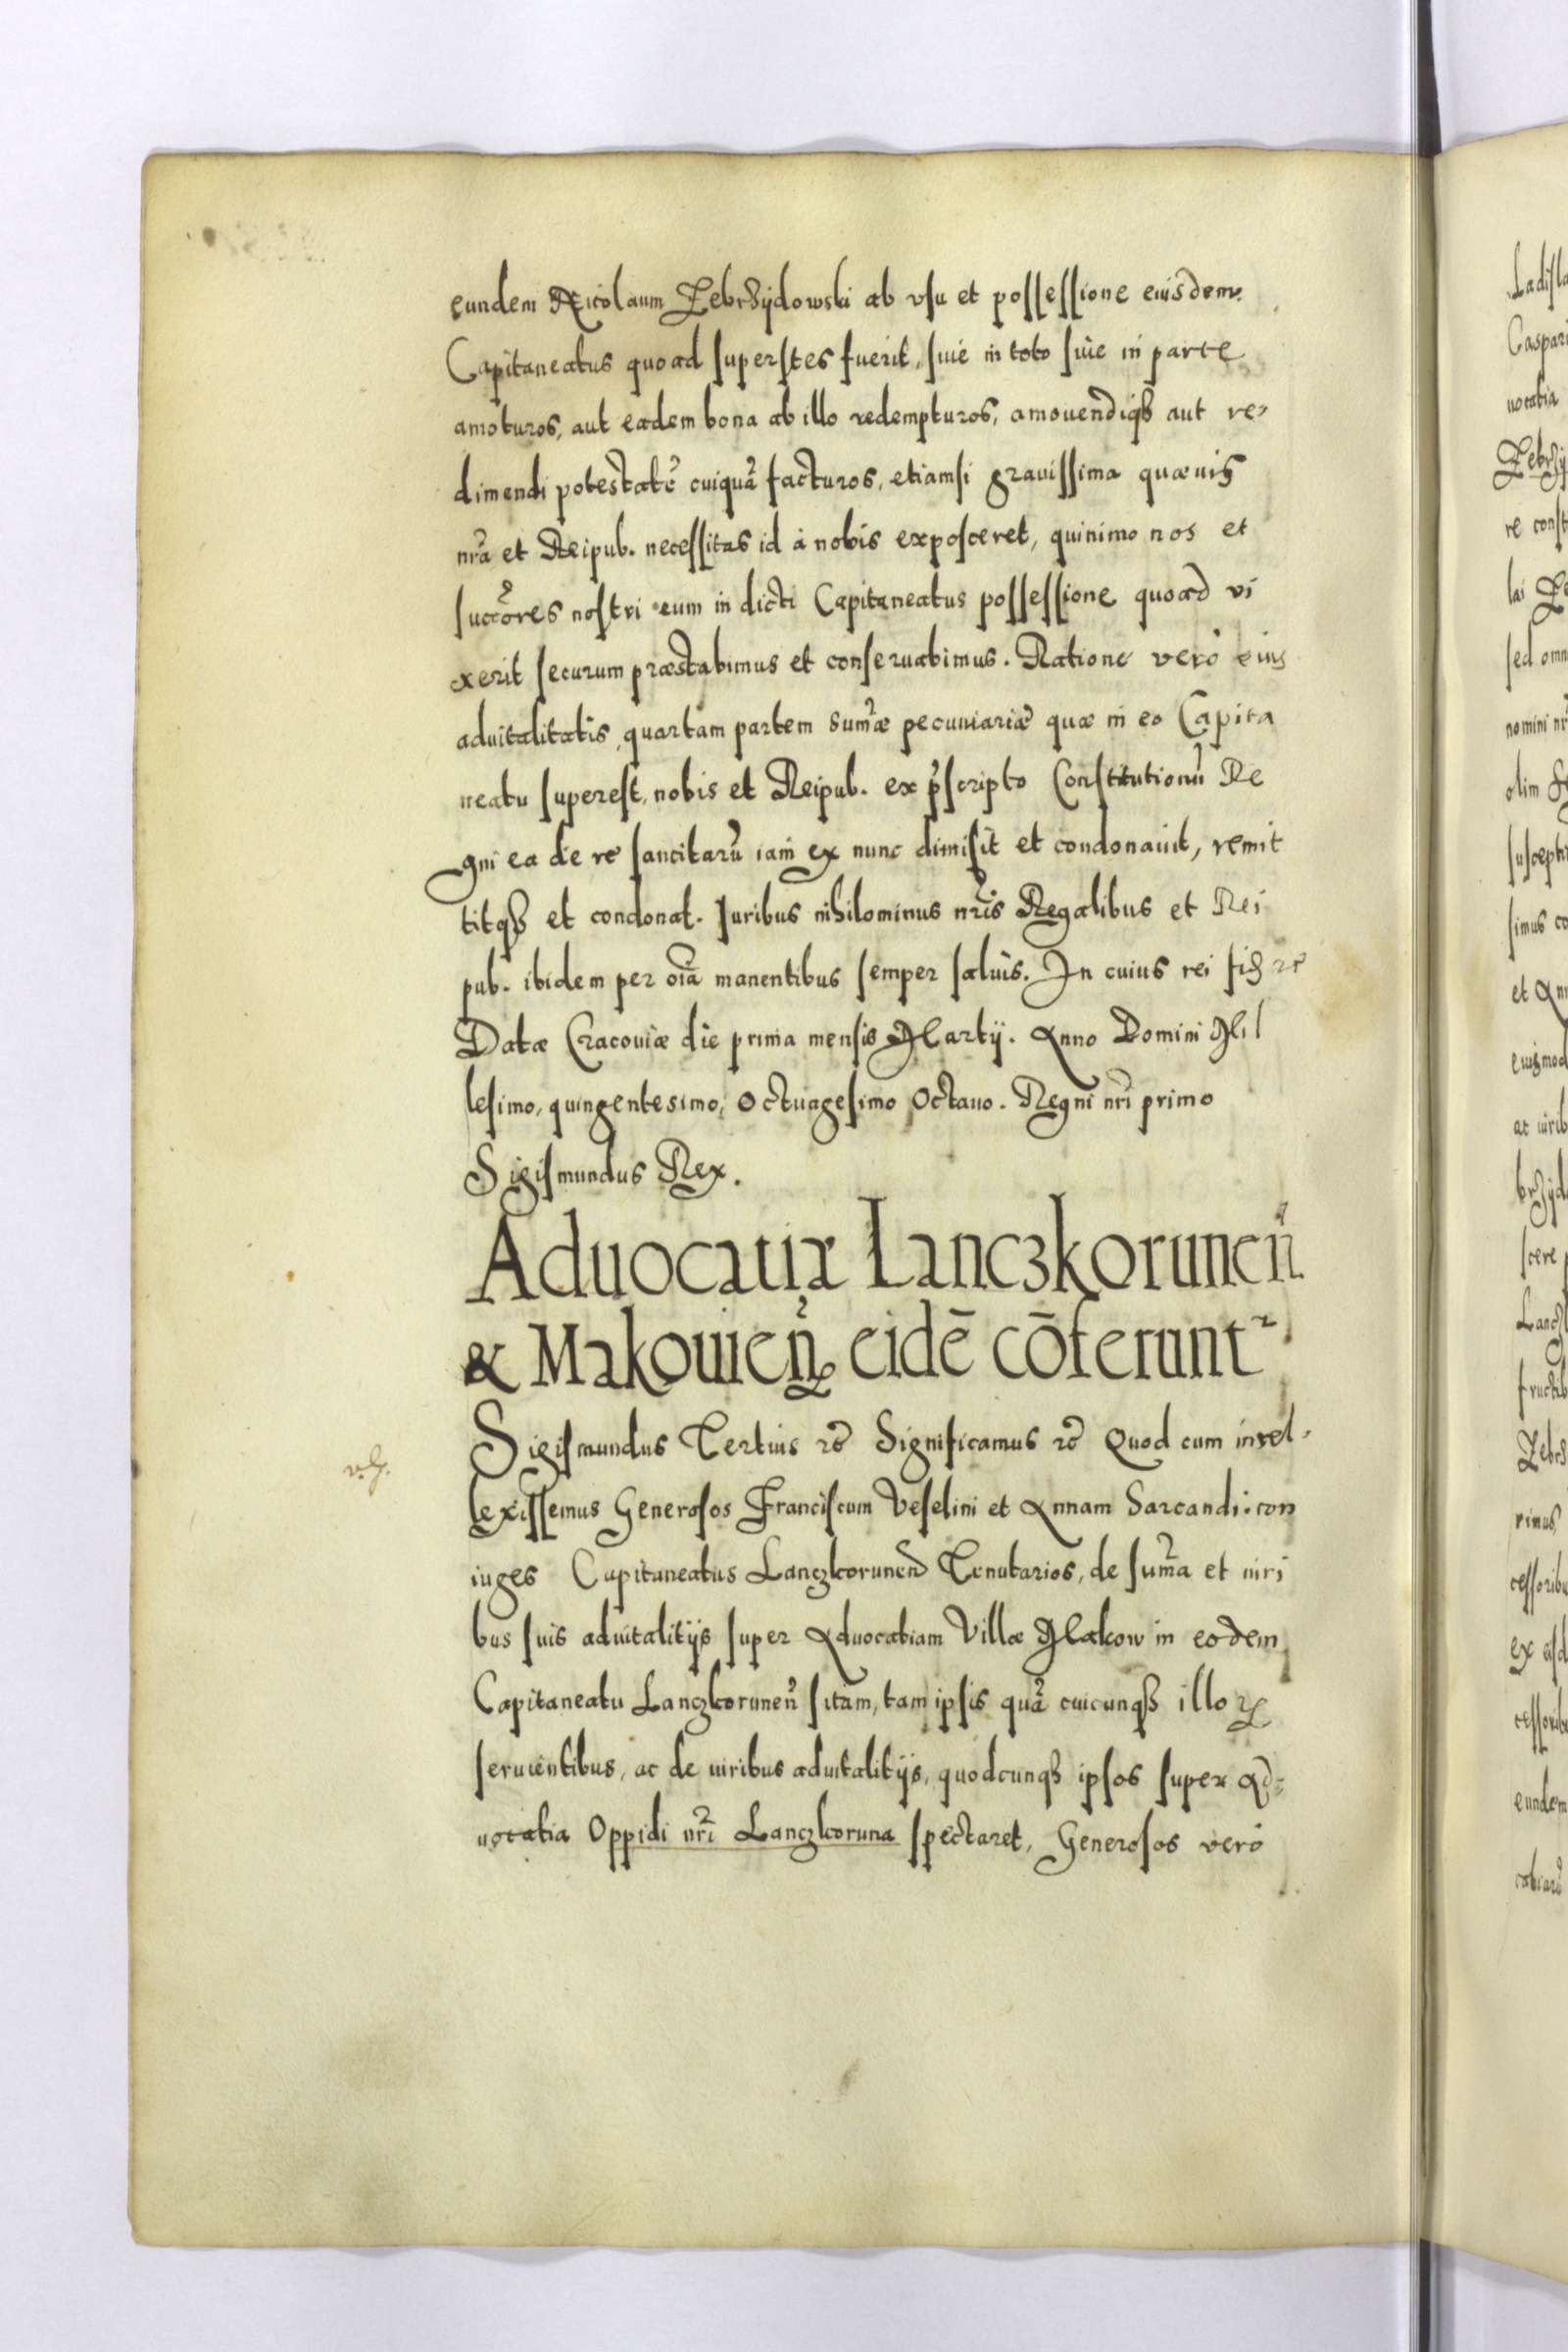 eundem Nicolaum Zebrzijdowski ab vsu et possessione eiusdem
Capitaneatus quoad superstes fuerit, siue in toto siue in parte
amoturos, aut eadem bona ab illo redempturos, amouendiqß aut re-
dimendi potestatẽ cuiquã facturos, etiamsi grauissima quæuis
nrã et Reipub. necessitas id à nobis exposceret, quinimo nos et
succõres nostri eum in dicti Capitaneatus possessione quoad vi
xerit securum præstabimus et conseruabimus. Ratione verò eius
aduitalitatis, quartam partem sum̃æ pecuniariæ quæ in eo Capita
neatu superest, nobis et Reipub. ex p̃scripto Constitutionũ Re
gni ea de re sancitarũ iam ex nunc dimisit et condonauit, remit
titqß et condonat. Iuribus nihilominus nr̃is Regalibus et Rei
pub. ibidem per oĩa manentibus semper saluis. In cuius rei fiꝫ ꝛc̃
Datæ Cracouiæ die prima mensis Martij. Anno Domini Mil
lesimo, quingentesimo, Octuagesimo Octauo. Regni nr̃i primo
Sigismundus Rex.
Aduocatiæ Lanczkorunen̄
& Makouien̄ꝝ eidē cōferuntᷣ
Sigismundus Tertius ꝛc̃ Significamus ꝛc̃ Quod cum intel-
lexissemus Generosos Franciscum Veselini et Annam Sarcandi: con
iuges Capitaneatus Lanczkorunen̄ Tenutarios, de sum̃a et iuri
bus suis aduitalitijs super Aduocatiam Villæ Makow in eodem
Capitaneatu Lanczkorunen̄ sitam, tam ipsis quã cuicunqß illoꝝ
seruientibus, ac de iuribus aduitalitijs, quodcunqß ipsos super Ad=
uocatia Oppidi nr̃i Lanczkoruna spectaret, Generosos verò